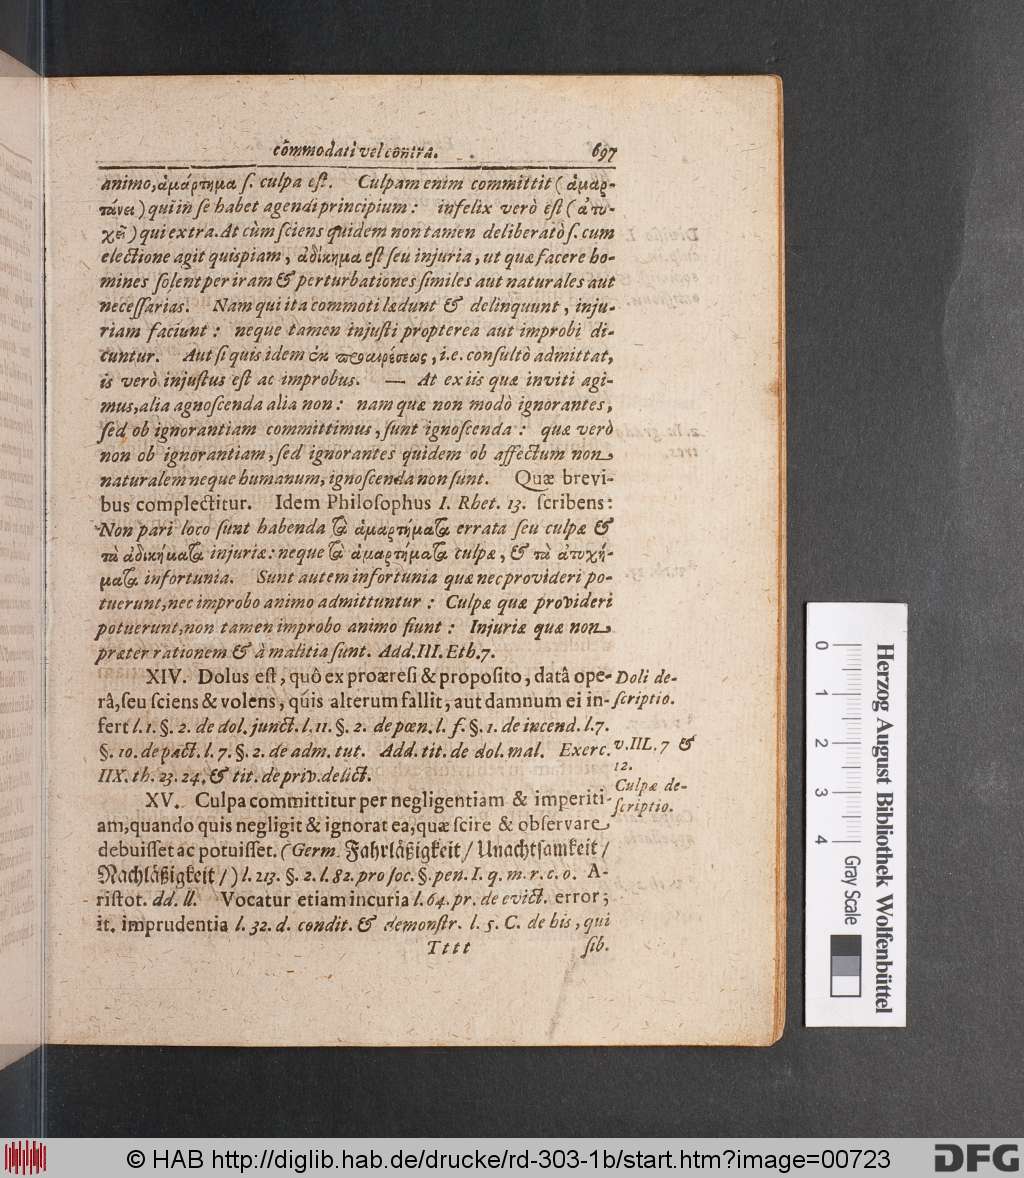 commodati vel contra. 697
animo, ἁμάρτημα ſ. culpa eſt. Culpam enim committit (ἁμαρ-
τάνει) qui in ſe habet agendi principium: infelix verò eſt (ἀτυ-
χεῖ) qui extra. At cùm ſciens quidem non tamen deliberatò ſ. cum
electione agit quispiam, ἀδίκημα eſt ſeu injuria, ut quæ facere ho-
mines ſolent per iram & perturbationes ſimiles aut naturales aut
neceſſarias. Nam qui ita commoti lædunt & delinquunt, inju-
riam faciunt: neque tamen injuſti propterea aut improbi di-
cuntur. Aut ſi quis idem ἐκ προαιρέσεως, i.e. conſultò admittat,
is verò injuſtus eſt ac improbus. — At ex iis quæ inviti agi-
mus, alia agnoſcenda alia non: nam quæ non modò ignorantes,
ſed ob ignorantiam committimus, ſunt ignoſcenda: quæ verò
non ob ignorantiam, ſed ignorantes quidem ob affectum non
naturalem neque humanum, ignoſcenda non ſunt. Quæ brevi-
bus complectitur. Idem Philoſophus I. Rhet. 13. ſcribens:
Non pari loco ſunt habenda τὰ ἁμαρτήματα errata ſeu culpæ &
τὰ ἀδικήματα injuriæ: neque τὰ ἁμαρτήματα culpæ, & τὰ ἀτυχή-
ματα infortunia. Sunt autem infortunia quæ nec provideri po-
tuerunt, nec improbo animo admittuntur: Culpæ quæ provideri
potuerunt, non tamen improbo animo fiunt: Injuriæ quæ non
præter rationem & à malitia ſunt. Add. III. Eth. 7.
XIV. Dolus eſt, quô ex proæreſi & propoſito, datâ ope-
râ, ſeu ſciens & volens, quis alterum fallit, aut damnum ei in-
fert l. 1. §. 2. de dol. junct. l. 11. §. 2. de pœn. l. f. §. 1. de incend. l. 7.
§. 10. de pact. l. 7. §. 2. de adm. tut. Add. tit. de dol. mal. Exerc.
IIX. th. 23. 24. & tit. de priv. delict.
Doli de-
ſcriptio.
v. IIL. 7 &
12.
XV. Culpa committitur per negligentiam & imperiti-
am, quando quis negligit & ignorat ea, quæ ſcire & obſervare
debuiſſet ac potuiſſet. (Germ. Fahrläßigkeit / Unachtſamkeit /
Nachläßigkeit /) l. 213. §. 2. l. 82. pro ſoc. §. pen. I. q. m. r. c. o. A-
riſtot. dd. ll. Vocatur etiam incuria l. 64. pr. de evict. error;
it. imprudentia l. 32. d. condit. & demonſtr. l. 5. C. de his, qui
Culpæ de-
ſcriptio.
Tttt ſib.
0 1 2 3 4
Gray Scale
Herzog August Bibliothek Wolfenbüttel
© HAB http://diglib.hab.de/drucke/rd-303-1b/start.htm?image=00723
DFG